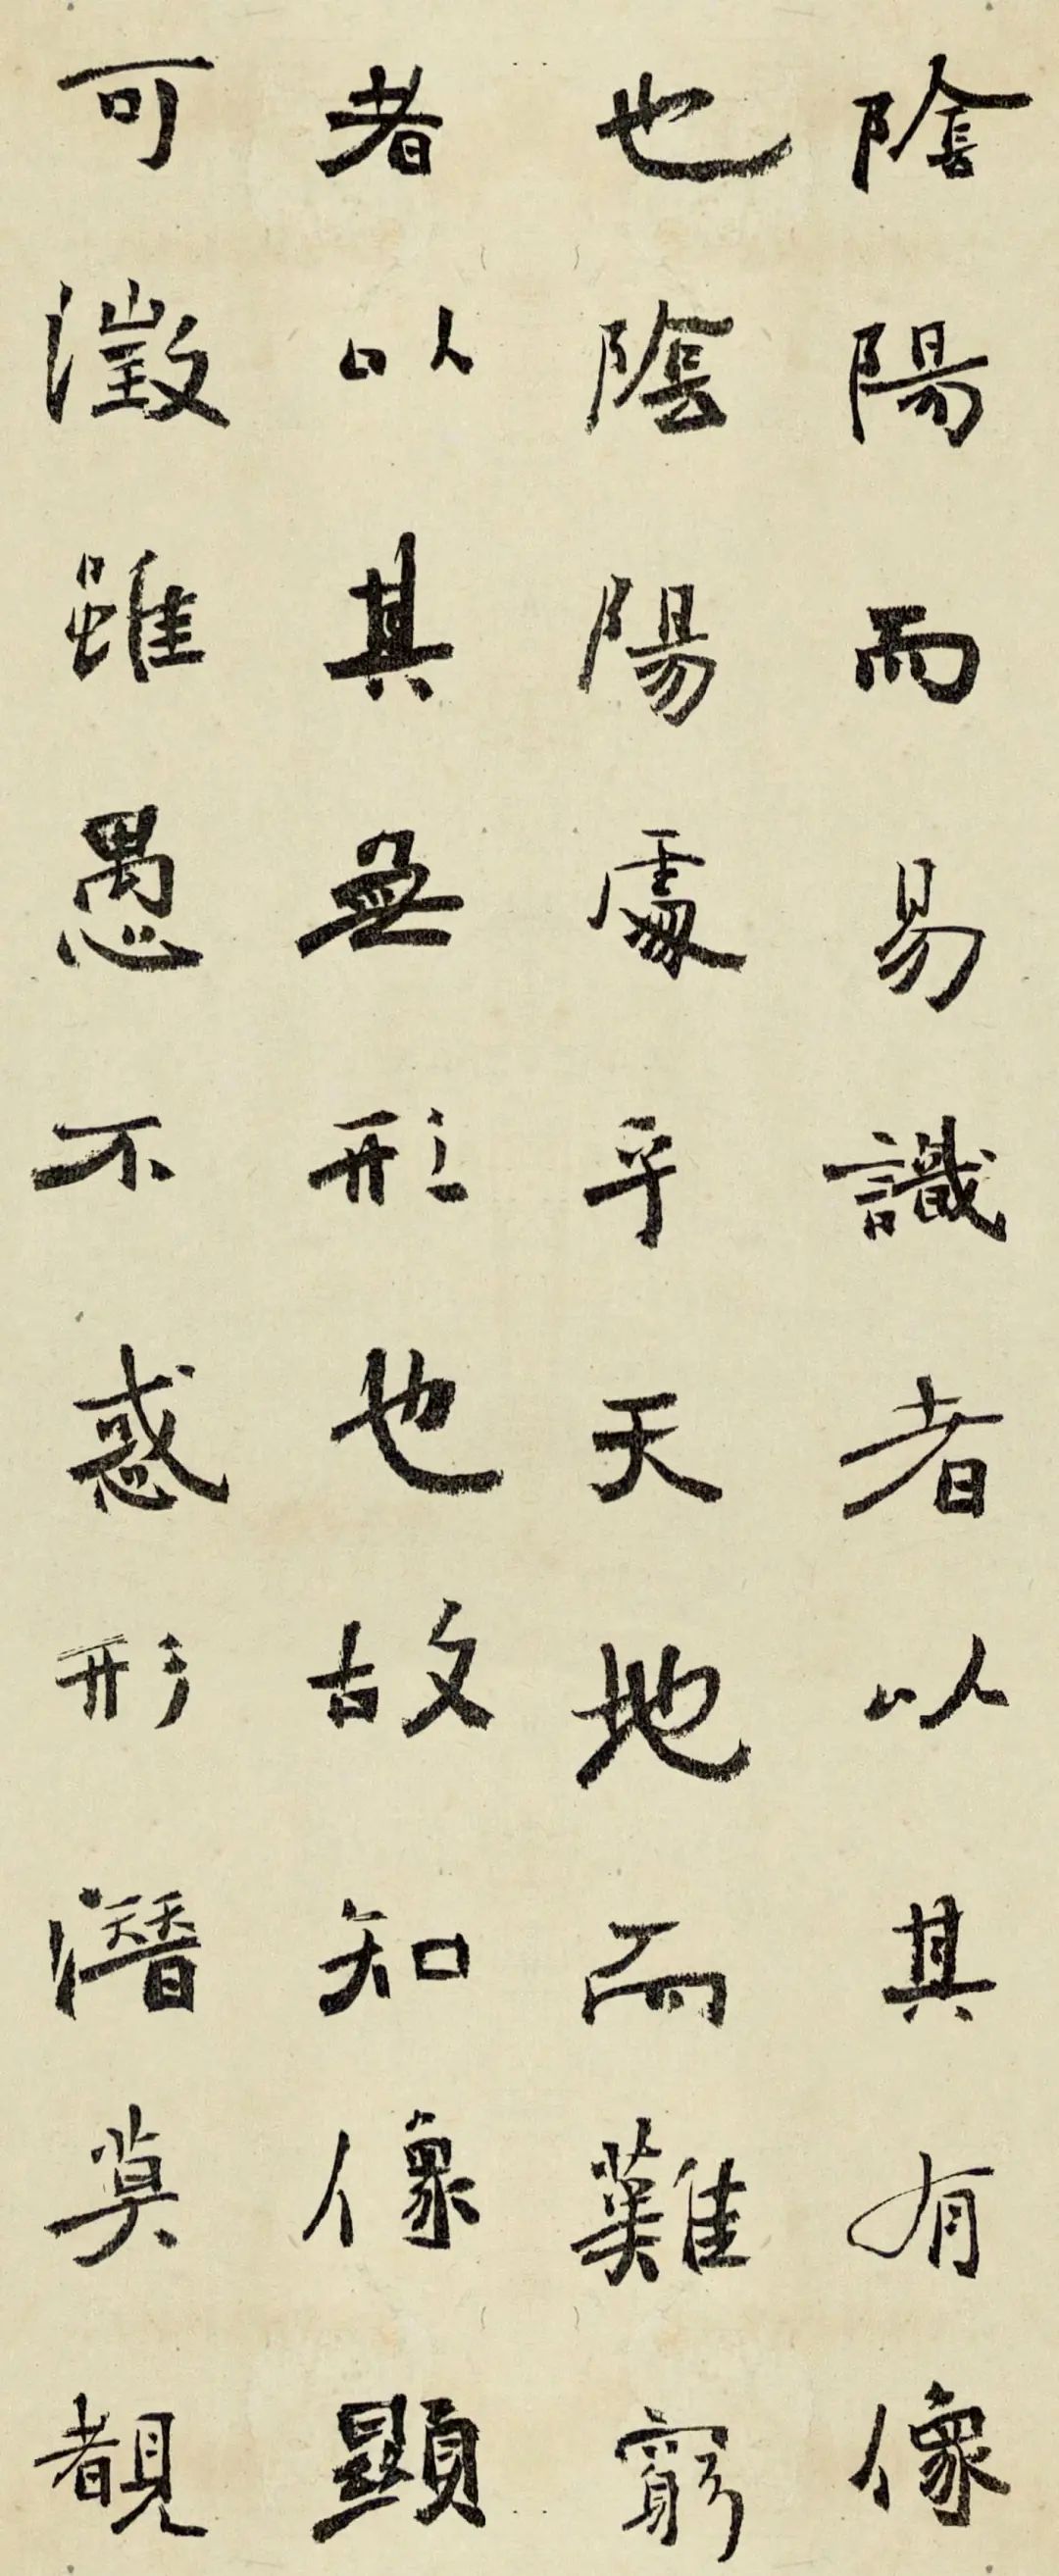 陰陽而易識者以其有像
也陰陽處乎天地而難窮
者以其無形也故知像顯
可徵雖愚不惑形潛莫覩